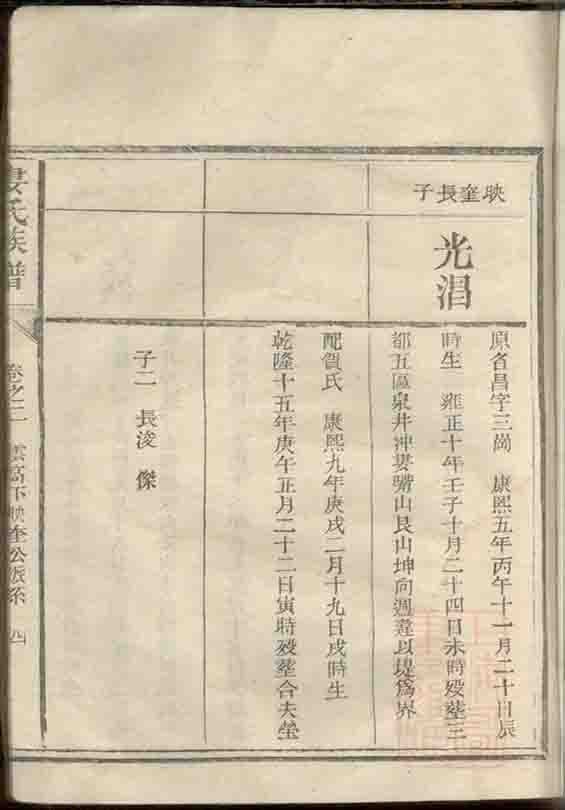 映奎長子
光淐
原名昌字三尚　康熙五年丙午十一月二十日辰
時生　雍正十年壬子十月二十四日未時殁塟三
都五區泉井冲婁嘴山艮山坤向週遶以堤為界
配賀氏　康熙九年庚戌二月十九日戌時生
乾隆十五年庚午五月二十二日寅時殁塟合夫塋
子二　長浚　傑
氏族譜
卷之二　雲高下映奎公派系　四